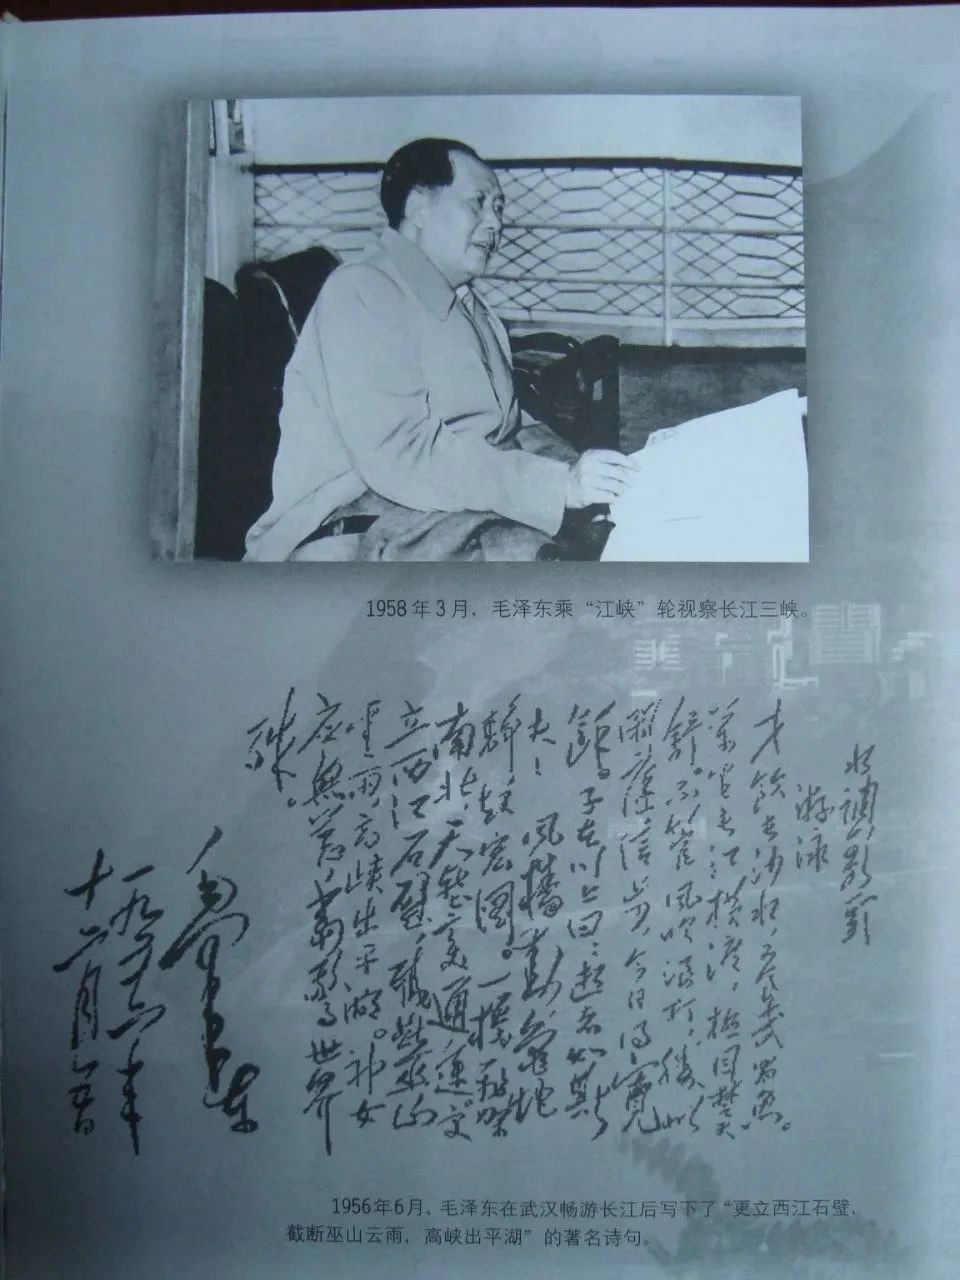 1958年3月，毛泽东乘“江峡”轮视察长江三峡。
水调歌头
游泳
才饮长沙水，又食武昌鱼。
万里长江横渡，极目楚天
舒。不管风吹浪打，胜似
闲庭信步，今日得宽
馀。子在川上曰：逝者如斯
夫！风樯动，龟蛇
静，起宏图。一桥飞架
南北，天堑变通途。更
立西江石壁，截断巫山
云雨，高峡出平湖。神女
应无恙，当惊世界
殊。
毛泽东
一九五六年
十二月五日
1956年6月，毛泽东在武汉畅游长江后写下了“更立西江石壁，
截断巫山云雨，高峡出平湖”的著名诗句。